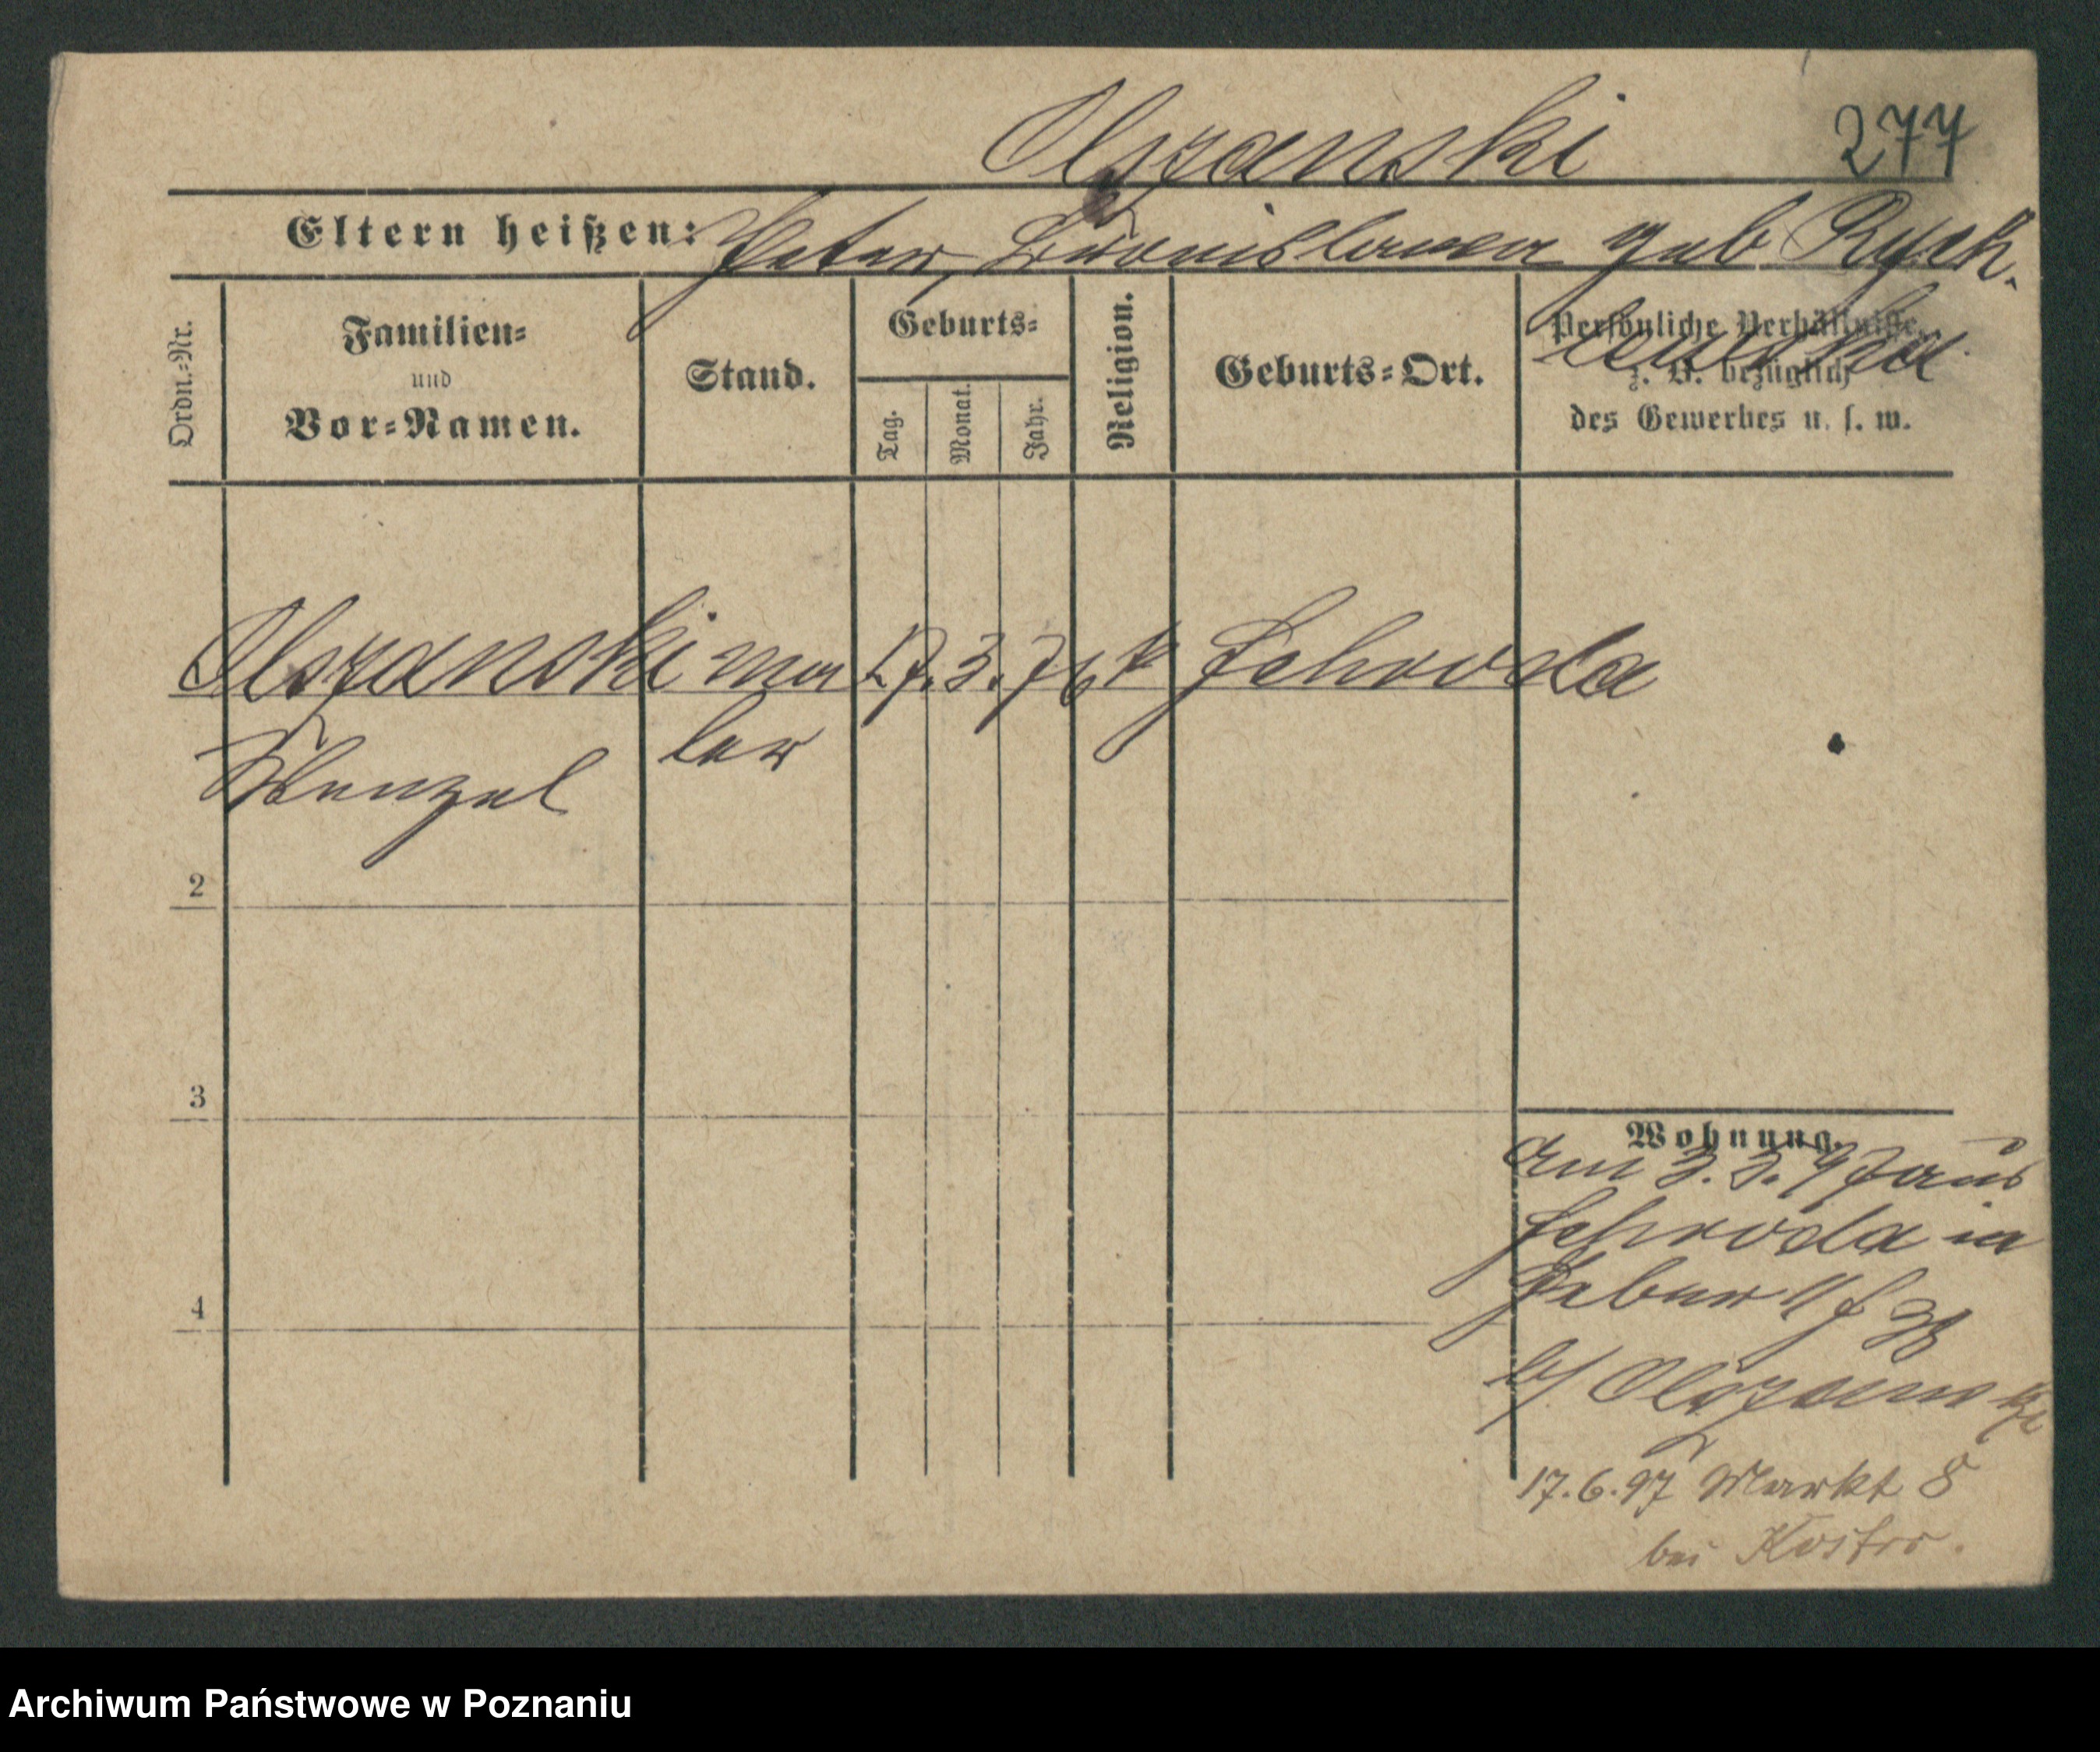 Olszanski 277
Eltern heißen: Peter, Bronislawa geb Rych-
lewska
Ordn.-Nr.
Familien-
und
Vor-Namen.
Stand.
Geburts-
Tag.
Monat.
Jahr.
Religion.
Geburts-Ort.
Persönliche Verhältnisse
z. B. bezüglich
des Gewerbes u. s. w.
Olszanski ma 17. 3. 76 k Schroda
Wenzel ler
2
3
4
Wohnung.
Am 3. 3. 97 aus
Schroda in
b/ Olszanski
17. 6. 97 Markt 8
bei
Archiwum Państwowe w Poznaniu